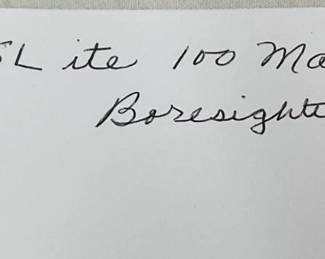 SL ite 100 Ma
Boresighte